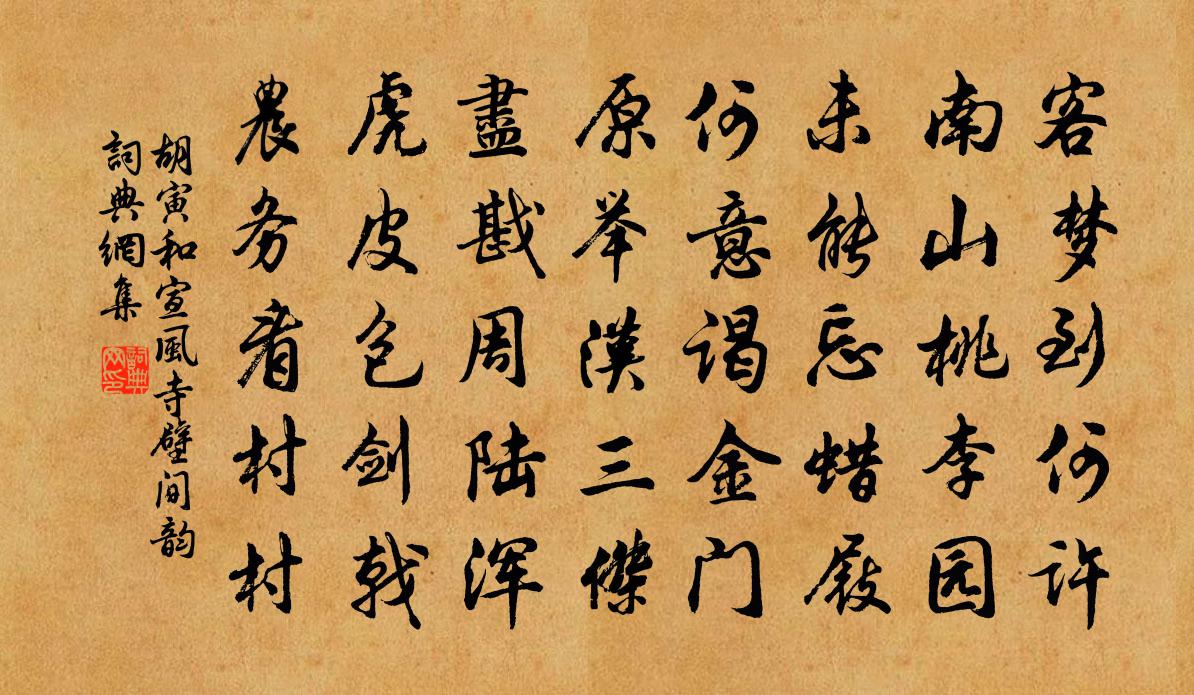 客梦到何许
南山桃李园
未能忘蜡屐
何意谒金门
原举漢三傑
盡戡周陆浑
虎皮包剑戟
農务看村村
胡寅和宣風寺壁间韵
詞典網集
詞典网印